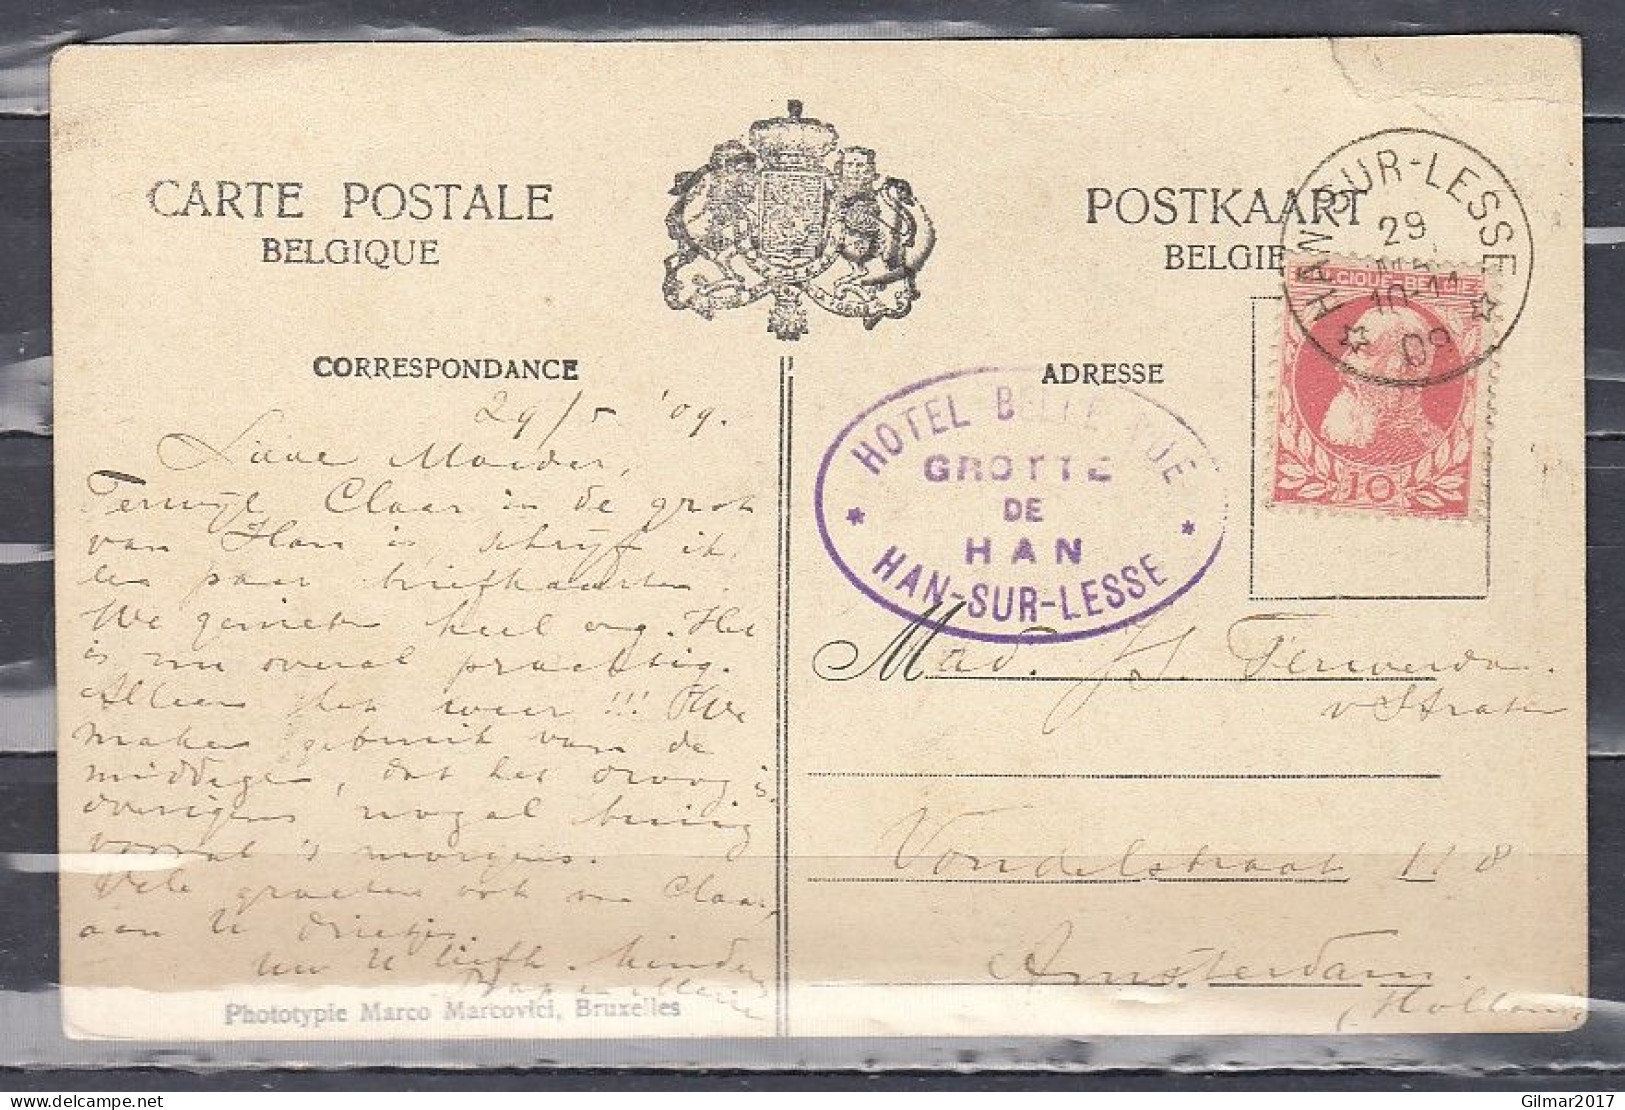 CARTE POSTALE
BELGIQUE
POSTKAART
BELGIE
HAN-SUR-LESSE
29
10-11
09
BELGIQUE-BELGIE
10
CORRESPONDANCE
ADRESSE
HOTEL BELLE VUE
GROTTE
DE
HAN
HAN-SUR-LESSE
29/5 '09.
Lieve Moeder,
Terwijl Claar in de grot
van Han is, schrijf ik
een paar briefkaarten.
We genieten heel erg. Het
is nu overal prachtig.
Alleen het weer !!! We
maken gebruik van de
middagen, dat het droog is.
overigens nogal
vooral 's morgens.
Vele groeten ook van Claar,
aan U drietjes.
Uw U liefh. kinderen
Mad. Terwerda
v Straten
Vondelstraat 118
Amsterdam.
Holland
Phototypie Marco Marcovici, Bruxelles
Gilmar2017